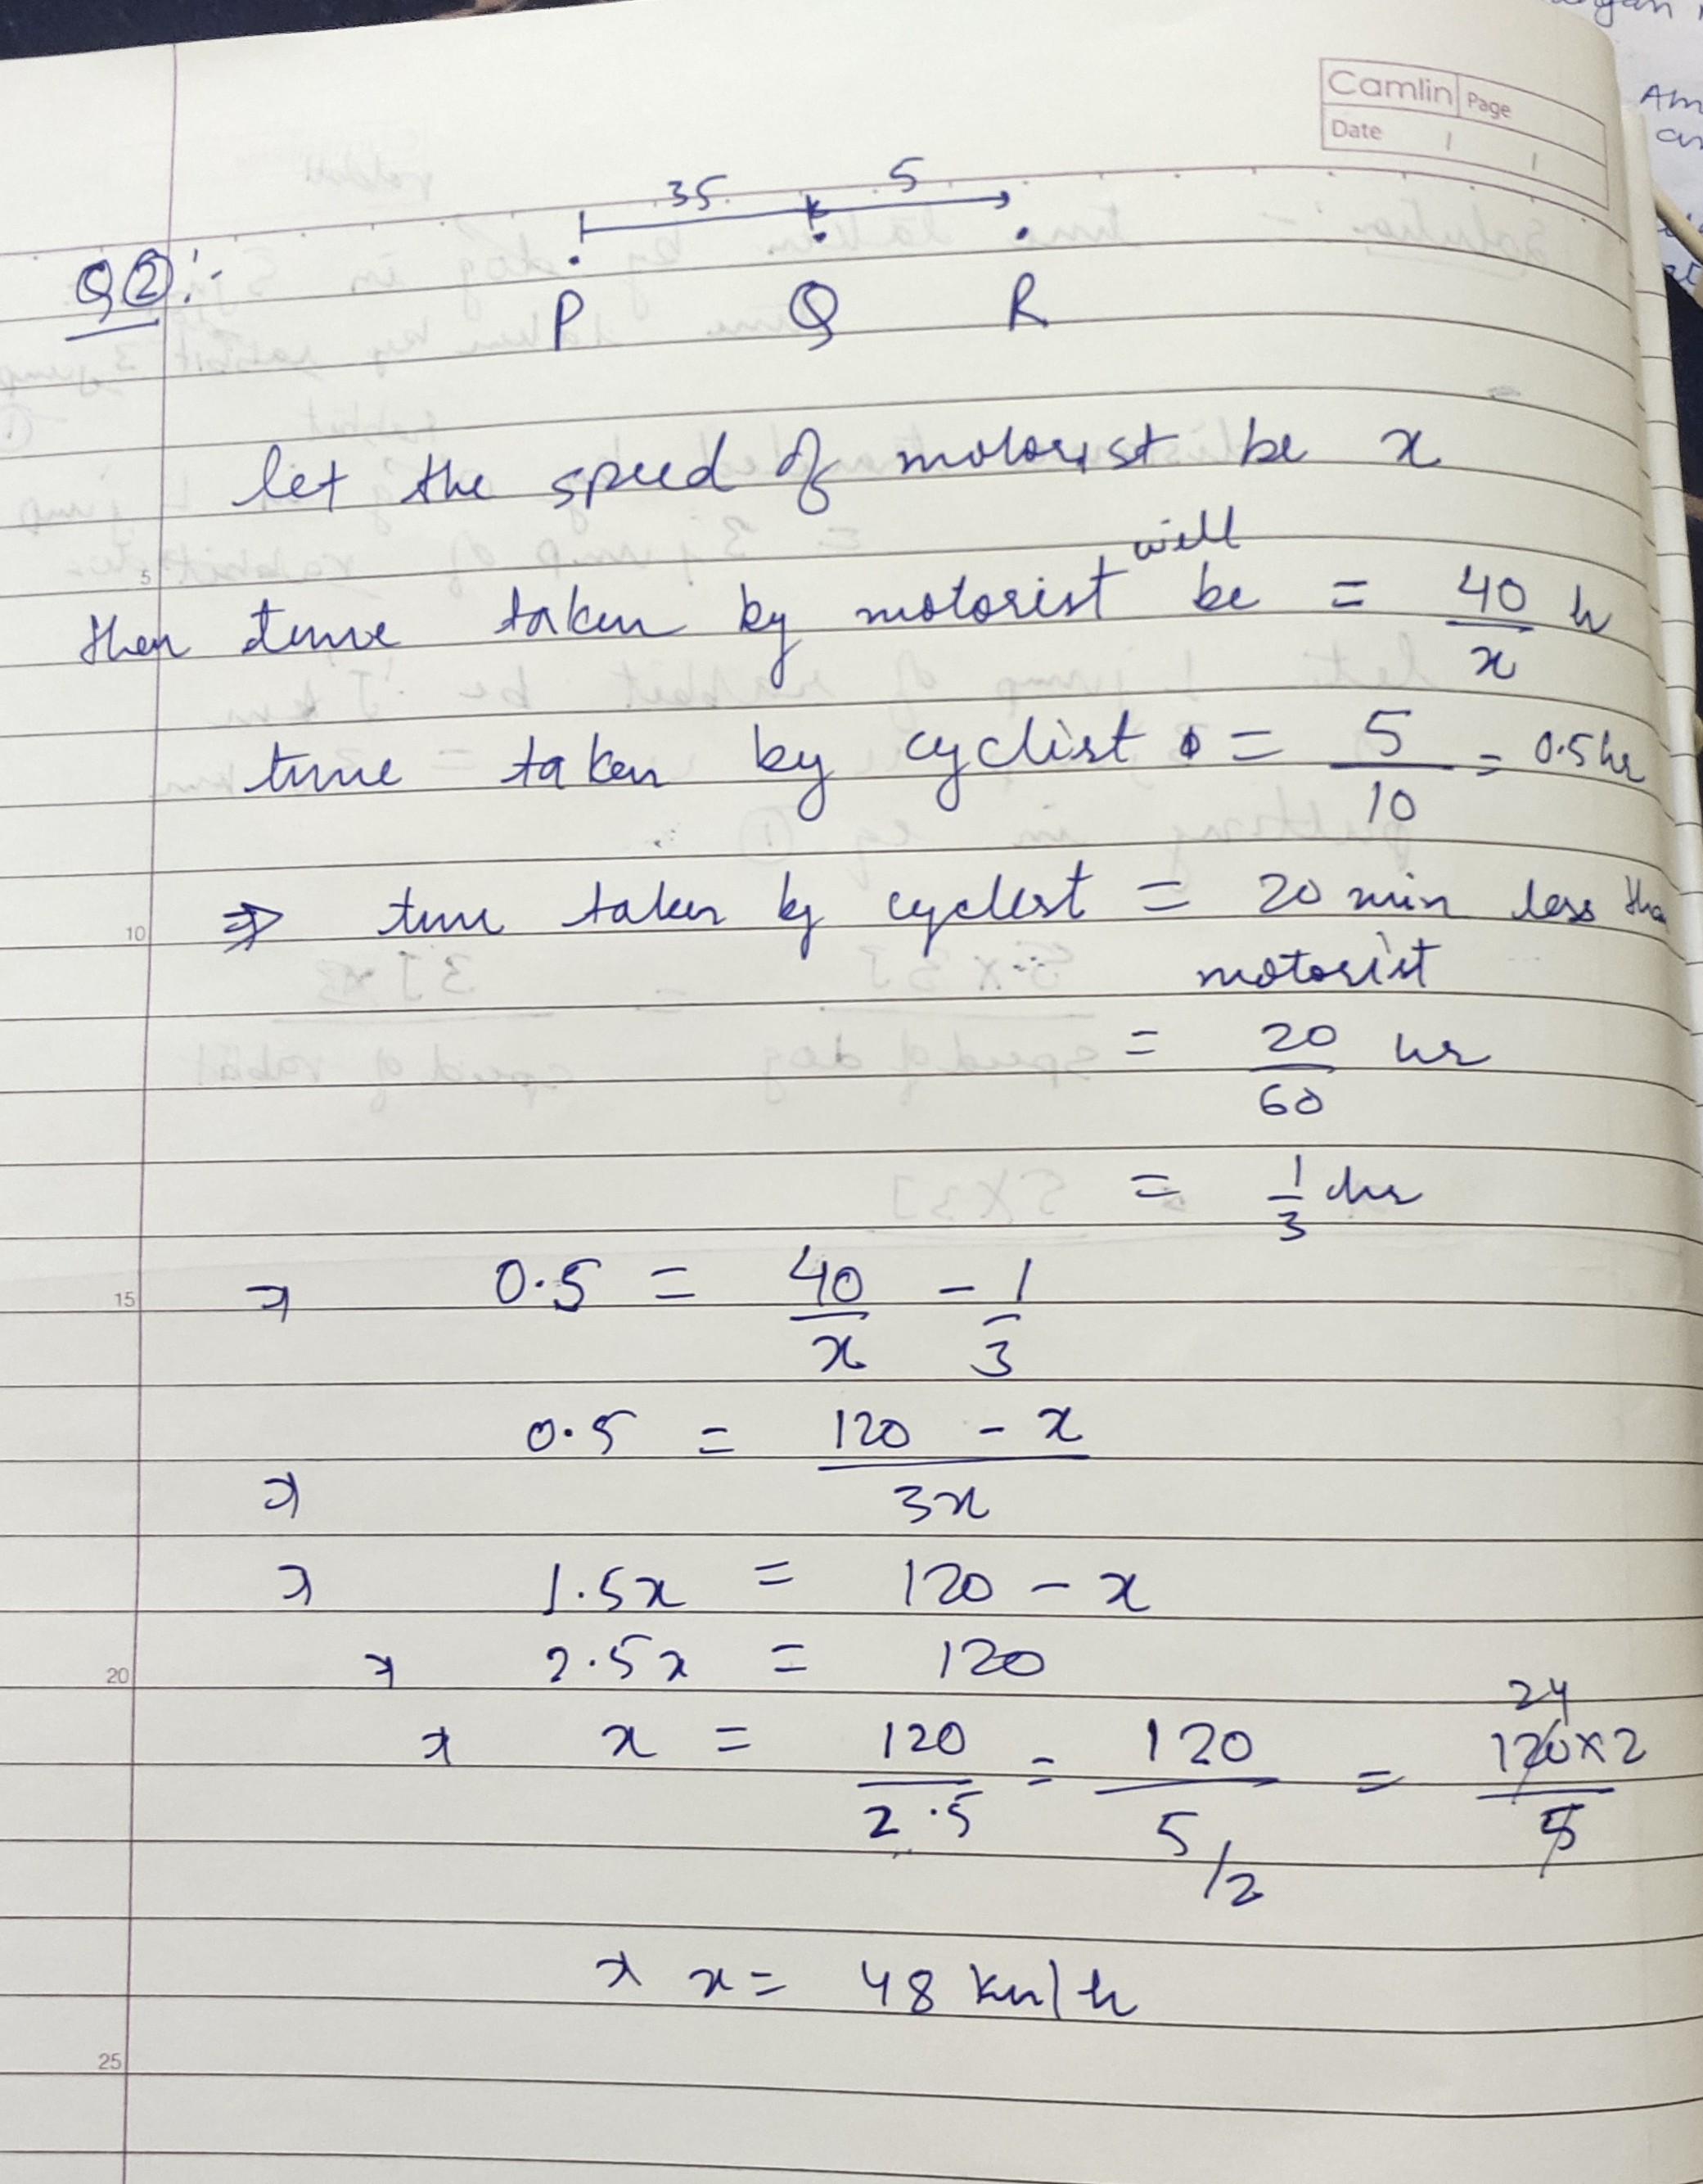 Camlin Page
Date / /
35 5
Q2:-
P Q R
let the speed of motorist be x
then time taken by motorist will be = 40/x h
time taken by cyclist = 5/10 = 0.5 hr
⇒ time taken by cyclist = 20 min less than
motorist
= 20/60 hr
= 1/3 hr
⇒ 0.5 = 40/x - 1/3
⇒ 0.5 = 120 - x / 3x
⇒ 1.5x = 120 - x
⇒ 2.5x = 120
⇒ x = 120/2.5 = 120/5/2 = 120×2/5 24
⇒ x = 48 km/h
5
10
15
20
25